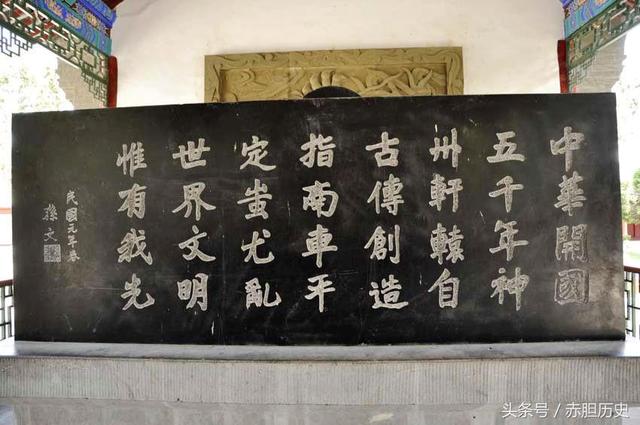 中華開國
五千年神
州軒轅自
古傳創造
指南車平
定蚩尤亂
世界文明
惟有我先
民國元年春
孫文
头条号／赤胆历史